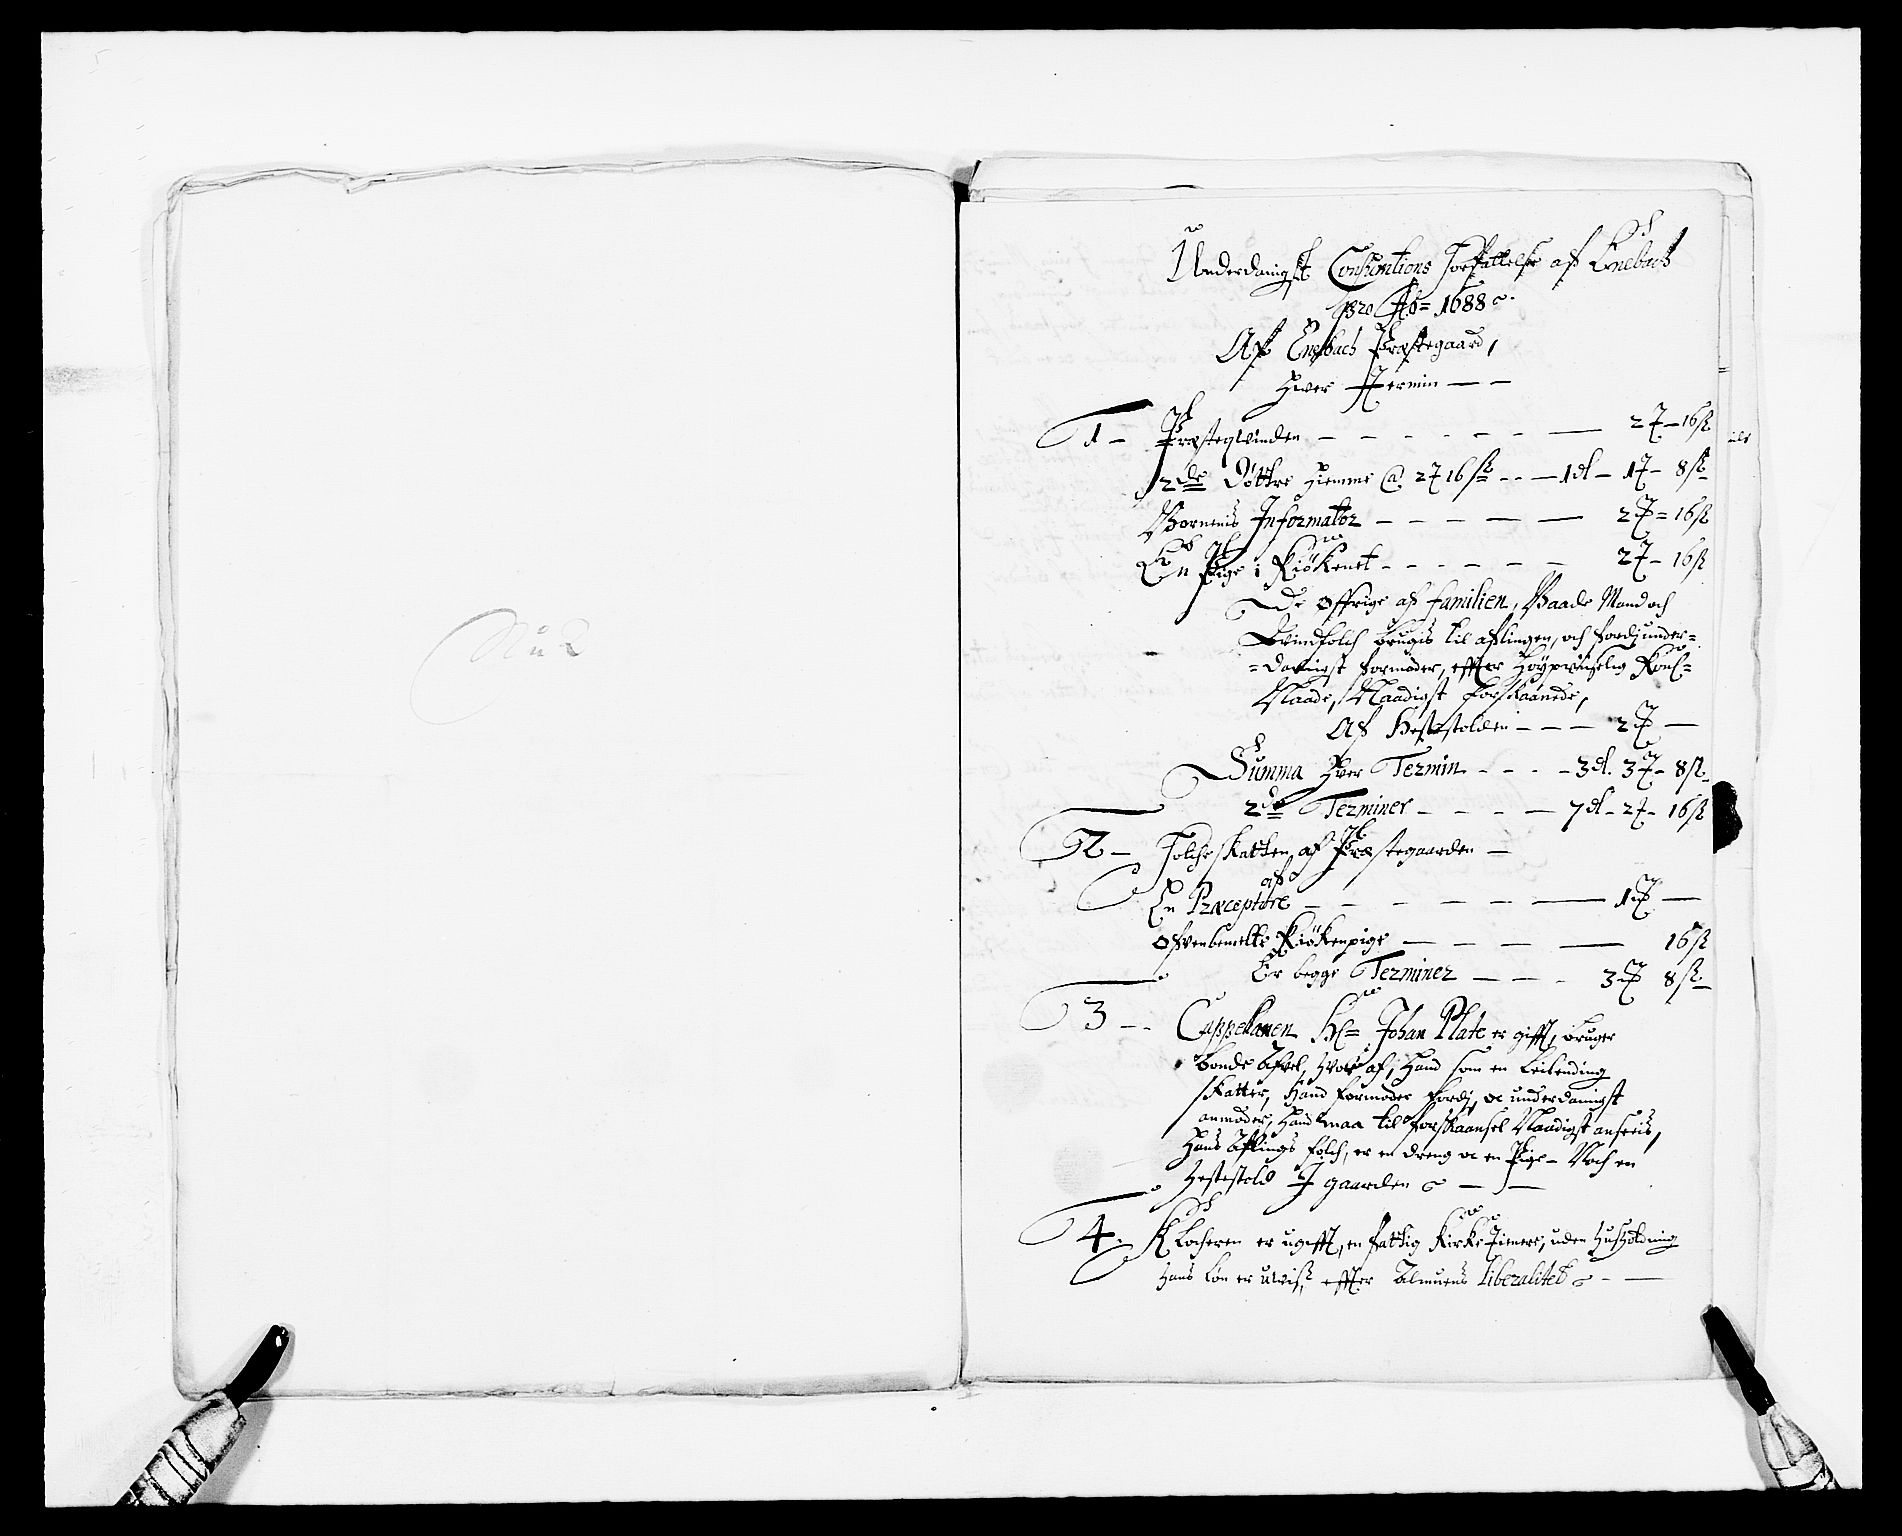 No 2
Underdanigst Consumtions Forfattelse af Enebach
pro Ao= 1688
Af Enebach Præstegaard,
Hver Termin
1 - Præsteqvinden - - - 2 - 16 ß
2de Døttre hiemme @ 2 16 ß - 1 dl - 1 - 8 ß
Børnenis Informator - - - 2 = 16 ß
En Pige i Kiøkenet - - - 2 - 16 ß
De øffrige af familien, Baade Mand och
Qvindfolch brugis til aflingen, och fordj under=
=danigst formoder, effter Høypriiselig Kong-
Naade, Naadigst forskaanede,
Af Hestestolden - - - 2 -
Summa Hver Termin - - - 3 dl. 3 - 8 ß
2de Terminer - - - 7 dl - 2 - 16 ß
2 - Folcheskatten af Præstegaarden -
En Præceptore - - - 1 -
ofvenbemelte Kiøkenpige - - - 16 ß
Er begge Terminer - - - 3 8 ß
3 - Cappellanen Hr= Johan Plate er gifft, bruger
bonde Afvel, hvor af, hand som en Leilending
skatter, Hand formoder fordj, oc underdanigst
anmoder, hand maa til forskaansel Naadigst ansees,
Hans Aflings folch, er en dreng oc en Pige - Noch en
Hestestold I gaarden -
4. Klocheren er ugifft, en fattig Kirke Tienere, uden Husholdning
Hans Løn er uviss effter Almuens liberalitet -